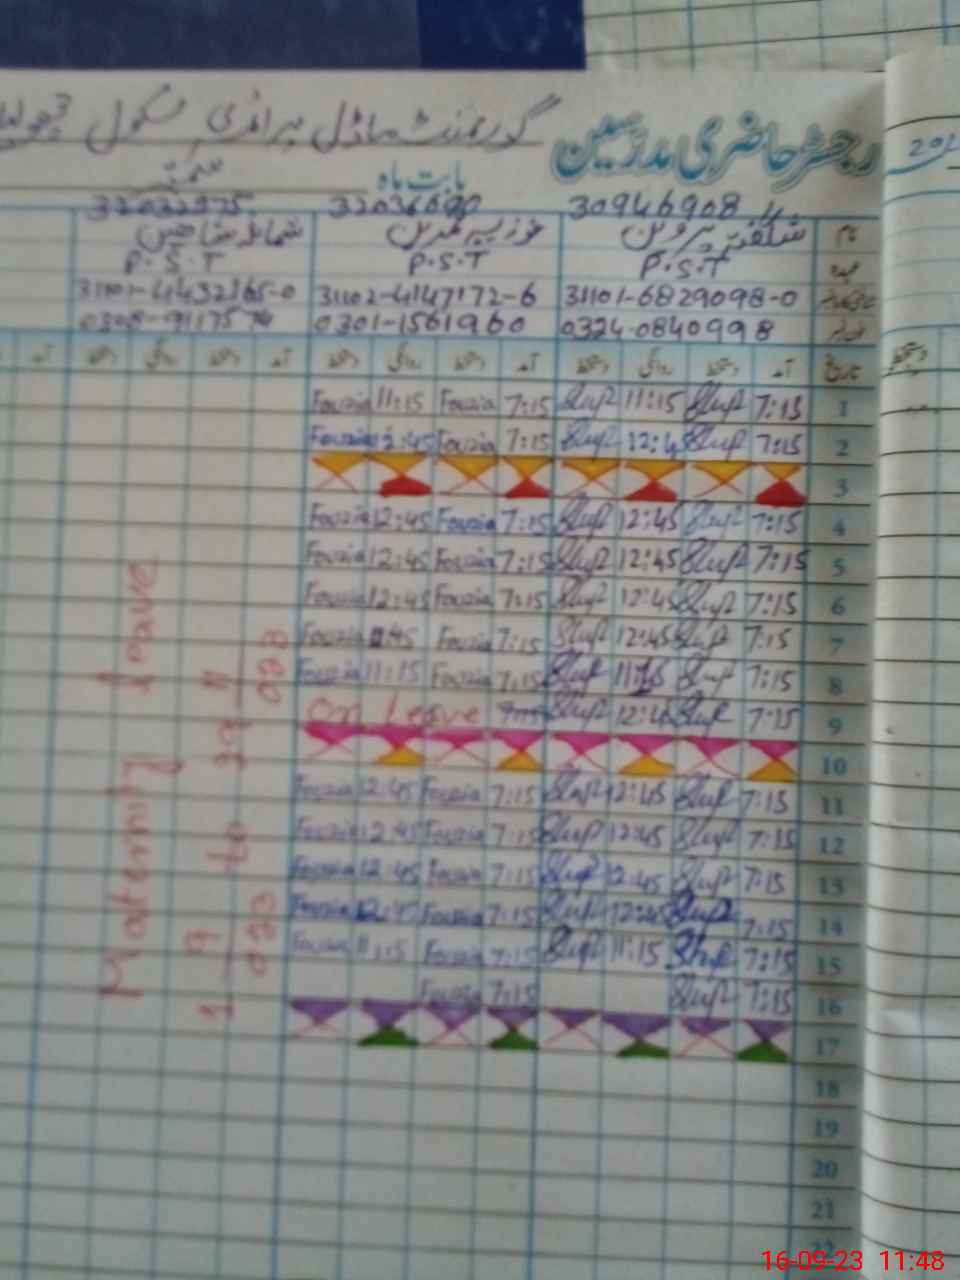 رجسٹر حاضری مدرسین گورنمنٹ ماڈل پرائمری سکول
202
بابت ماہ ستمبر
30946908 32036690 32032975
نام شگفتہ پروین فوزیہ شمائلہ شاہین
عہدہ P.S.T P.S.T P.S.T
31101-6829098-0 31102-4147172-6 31101-4432165-0
0324-0840998 0301-1561960 0308-9117574
تاریخ آمد دستخط روانگی دستخط آمد دستخط روانگی دستخط آمد دستخط روانگی دستخط آمد
1 7:15 11:15 7:15 Fouzia 11:15 Fouzia
2 7:15 12:45 7:15 Fouzia 12:45 Fouzia
3
4 7:15 12:45 7:15 Fouzia 12:45 Fouzia
5 7:15 12:45 7:15 Fouzia 12:45 Fouzia
6 7:15 12:45 7:15 Fouzia 12:45 Fouzia
7 7:15 12:45 7:15 Fouzia Fouzia
8 7:15 7:15 Fouzia 11:15 Fouzia
9 7:15 12:45 On Leave
10
11 7:15 12:45 7:15 Fouzia 12:45 Fouzia
12 7:15 12:45 7:15 Fouzia 12:45 Fouzia
13 7:15 12:45 7:15 Fouzia 12:45 Fouzia
14 7:15 12:45 7:15 Fouzia 12:45 Fouzia
15 7:15 11:15 7:15 Fouzia 11:15 Fouzia
16 7:15 7:15 Fouzia
17
18
19
20
21
22
Maternity Leave
1 9 023 to 29 11 023
16-09-23 11:48